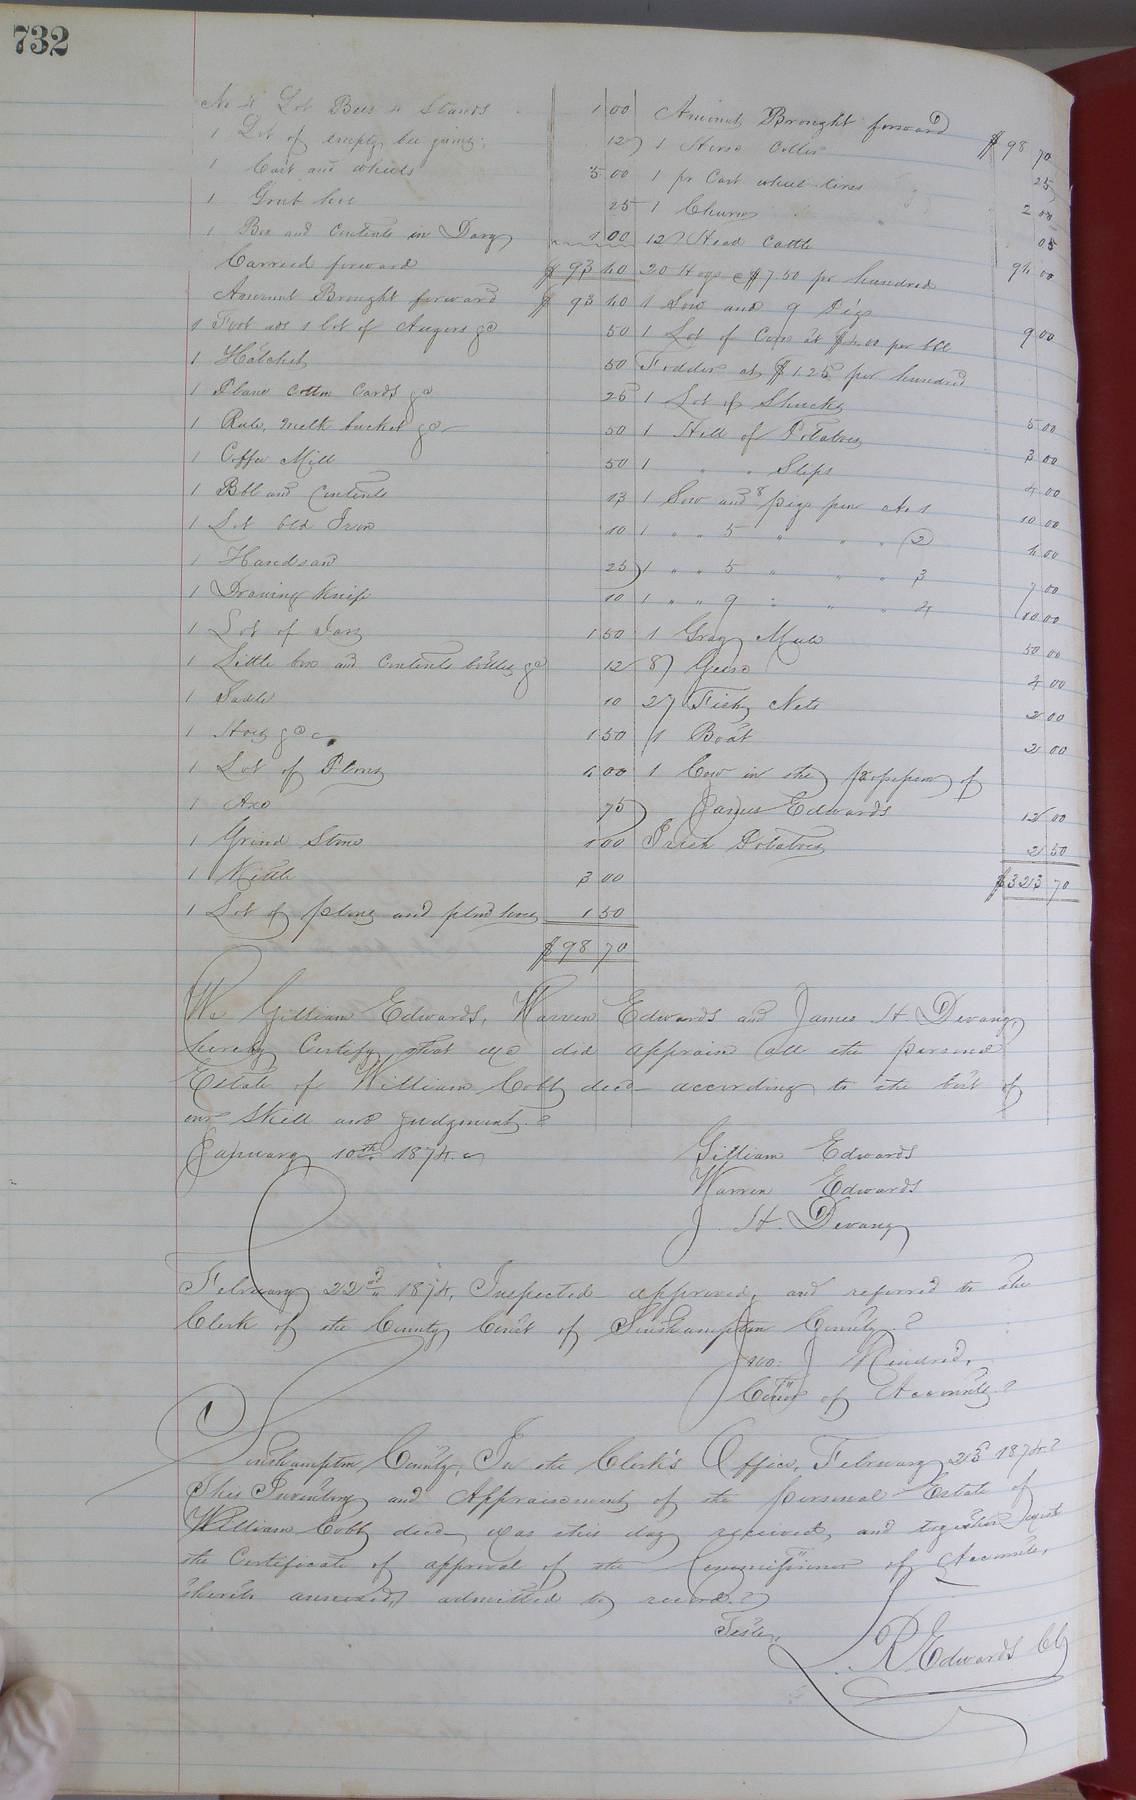 732
No 4 Lot Bees 4 Stands 1 00
1 Lot of empty bee gums 12
1 Cart and wheels 5 00
1 Grub hoe 25
1 Box and Contents in Dary 1 00
Carried forward $ 93 40
Amount Brought forward $ 93 40
1 Foot ads 1 lot of Augers &c 50
1 Hatchet 50
1 Plane Cotton Cards &c 25
1 Rule, milk bucket &c 50
1 Coffee Mill 50
1 Bbl and Contents 13
1 Lot Old Iron 10
1 Handsaw 25
1 Drawing Knife 10
1 Lot of Jars 1 50
1 Little box and Contents bottles &c 12
1 Sadle 10
1 Hoes &c 1 50
1 Lot of Plows 4 00
1 Axe 75
1 Grind Stone 1 00
1 Kittle 3 00
1 Lot of plows and plow hoes 1 50
$ 98 70
Amount Brought forward $ 98 70
1 Horse Coller 25
1 pr Cart wheel tires 2 00
1 Churn 05
12 Head Cattle 94 00
20 Hogs @ $7.50 per hundred
1 Sow and 9 Pigs 9 00
1 Lot of Corn at $4.00 per bbl
Fodder at $1.25 per hundred
1 Lot of Shucks 5 00
1 Hill of Potatoes 3 00
1 " " Slips 4 00
1 Sow and 8 pigs pen No 1 10 00
1 " " 5 " " " 2 4 00
1 " " 5 " " " 3 7 00
1 " " 9 " " " 4 10 00
1 Gray Mule 50 00
8 Geese 4 00
2 Fish Nets 2 00
1 Boat 2 00
1 Cow in the possession of
James Edwards 12 00
Irish Potatoes 2 50
$ 323 70
We Gilliam Edwards, Warren Edwards and James H Devany,
hereby Certify that we did appraise all the personal
Estate of William Cobb decd according to the best of
our Skill and judgment.
January 10th 1874.
Gilliam Edwards
Warren Edwards
J. H. Devany
February 22nd 1874, Inspected approved, and referred to the
Clerk of the County Court of Southampton County.
Jno: J Kindred,
Comr of Accounts.
Southampton County, In the Clerk's Office, February 23 1874.
This Inventory and Appraisement of the personal Estate of
William Cobb decd was this day received, and together with
the Certificate of approval of the Commissioner of Accounts,
thereto annexed, admitted to record.
Teste,
R Edwards Clk